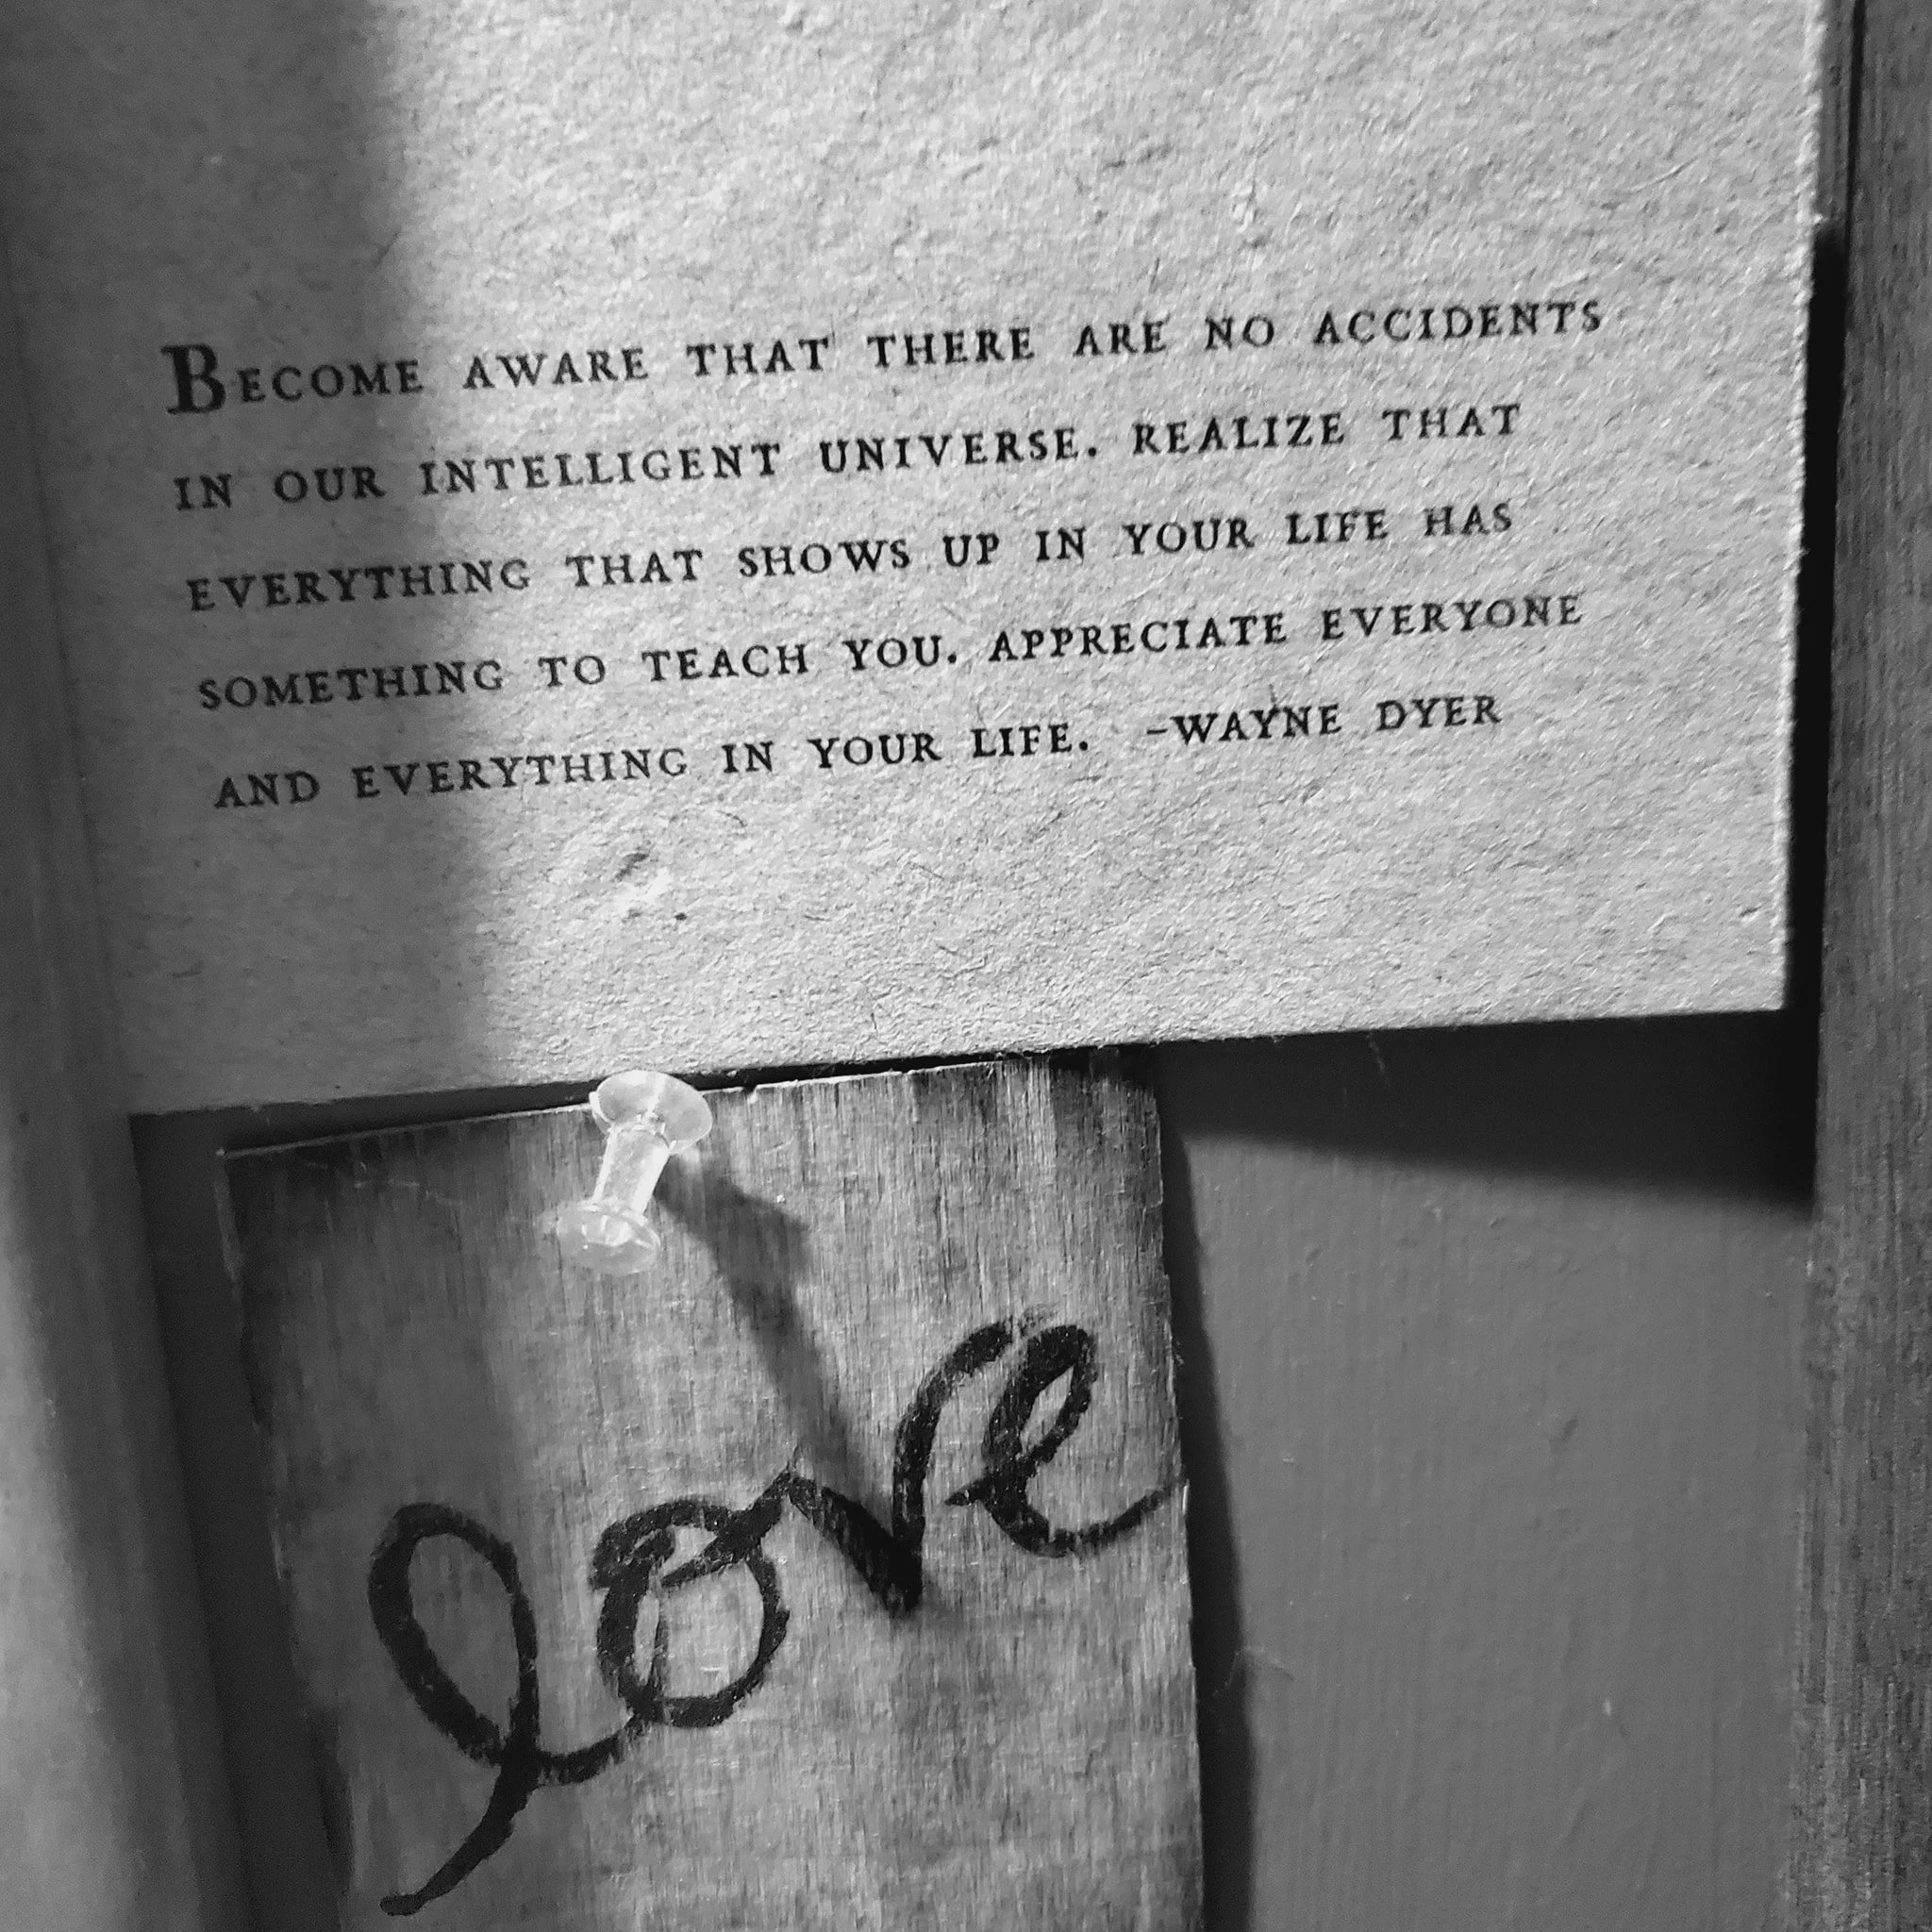 Become aware that there are no accidents
in our intelligent universe. realize that
everything that shows up in your life has
something to teach you. appreciate everyone
and everything in your life. -wayne dyer
love